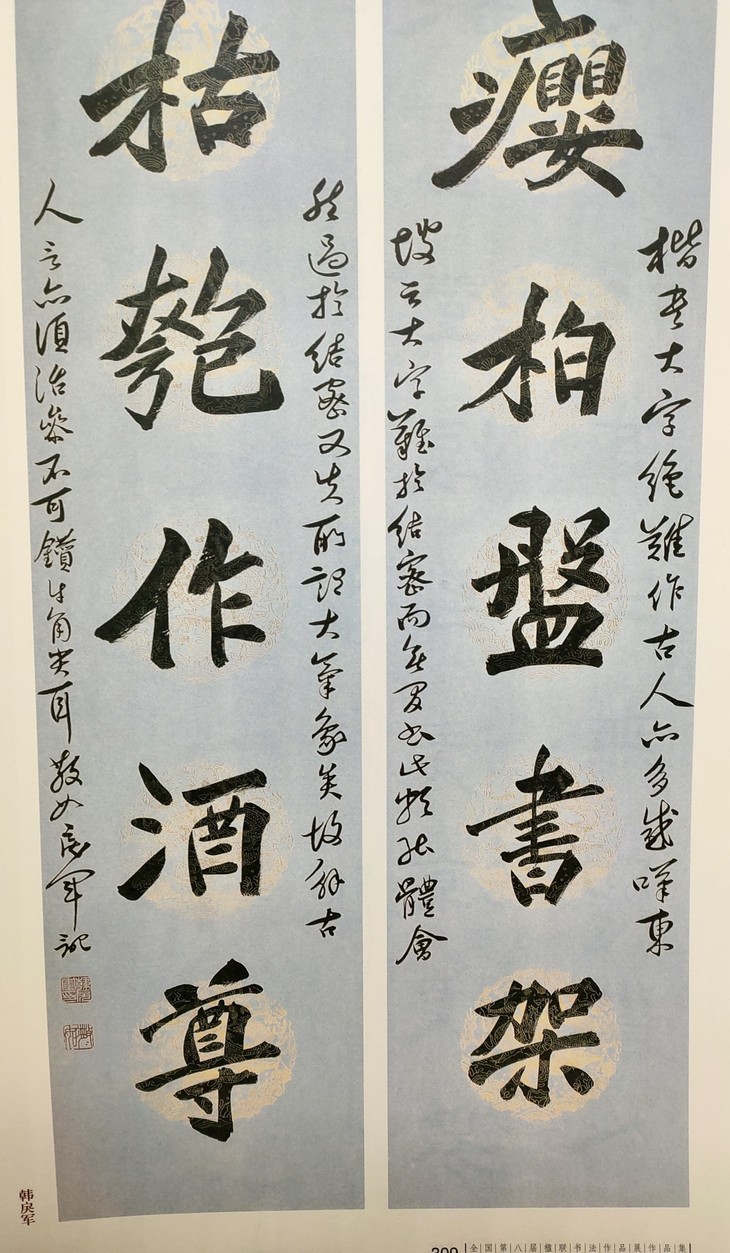 癭柏盤書架
楷書大字絶難作古人亦多感嘆東
坡云大字難於結密而無間書此頗能體會
枯匏作酒尊
然過於結密又失所謂大氣象矣故解古
人言亦須活參不可鑽牛角尖耳敬如戾军記
韩戾军
全国第八届楹联书法作品展作品集